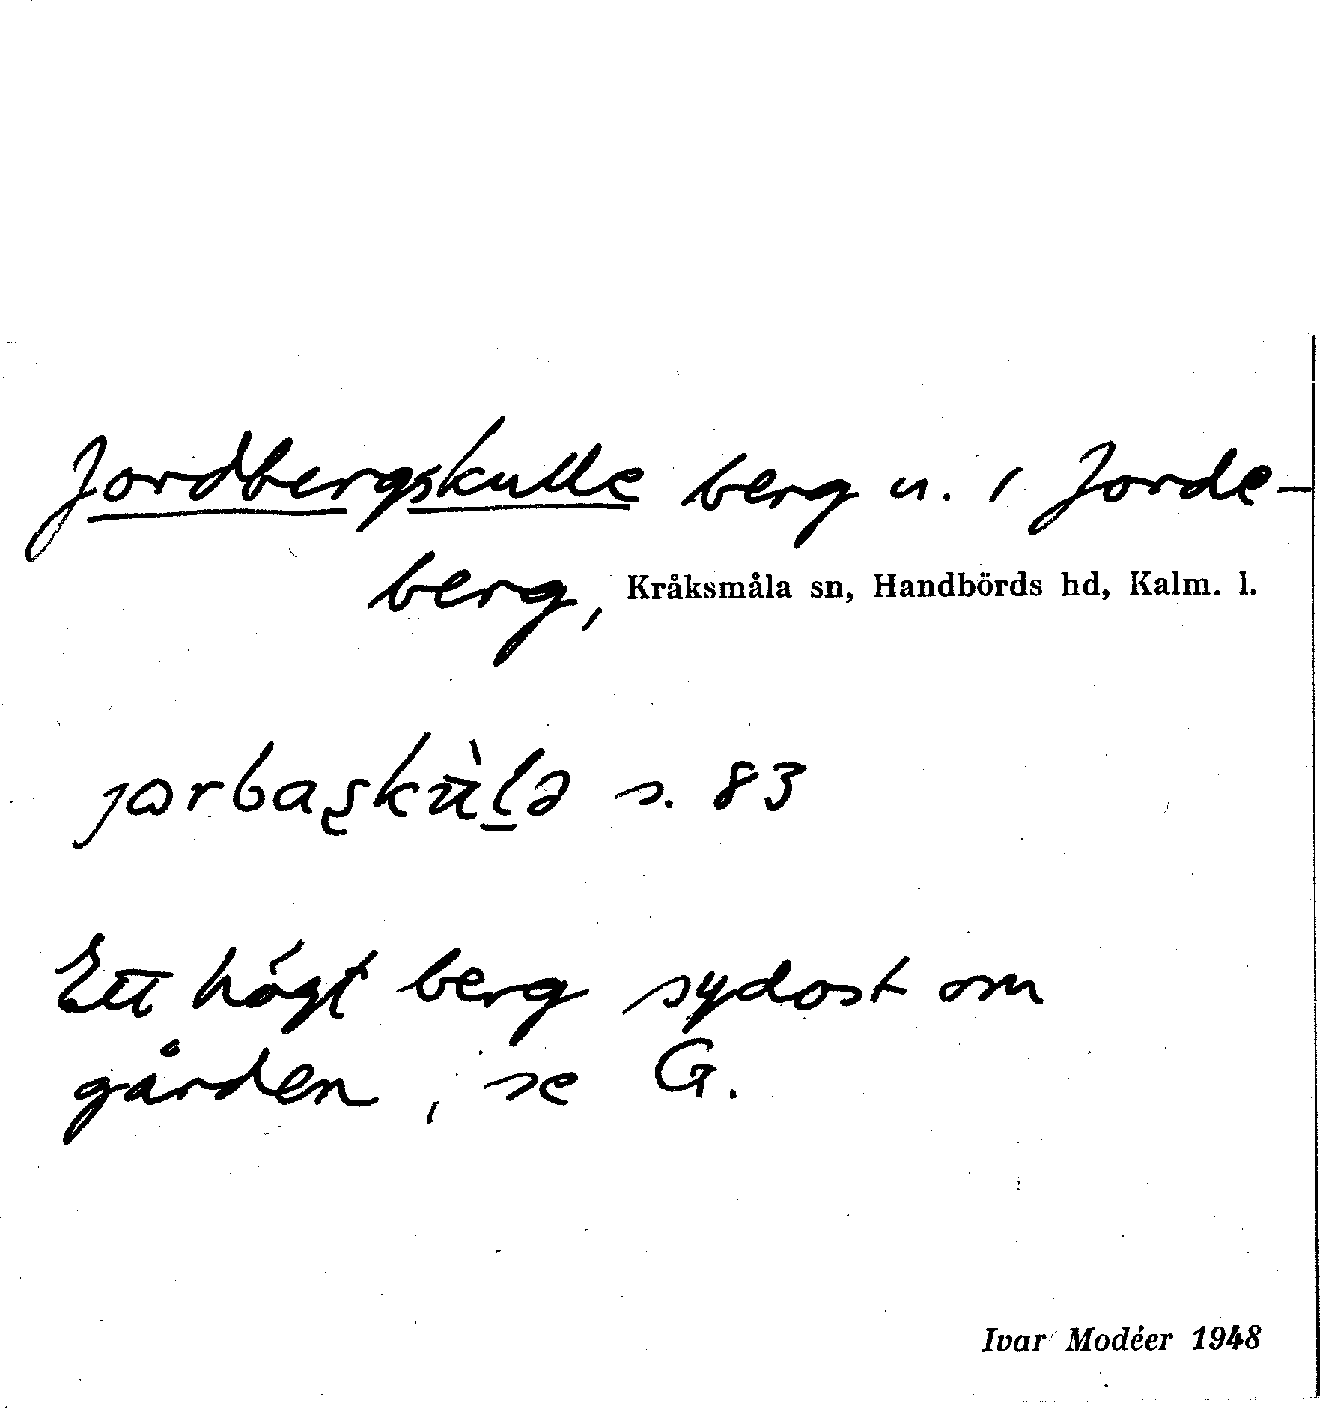 Jordbergskulle berg u. 1 Jorde-
berg, Kråksmåla sn, Handbörds hd, Kalm. l.
s. 83
Ett högt berg sydost om
gården, se G.
Ivar Modéer 1948